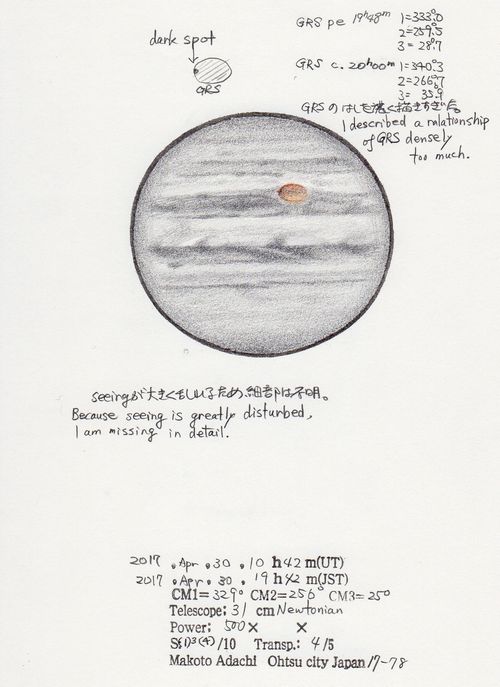 dark spot
GRS
GRS pe 19h48m 1=333°.0
2=259°.5
3=28°.7
GRS c. 20h00m 1=340°.3
2=266°.7
3=35°.9
GRSのはしを濃く描きすぎた。
I described a relationship
of GRS densely
too much.
seeingが大きくみだれているため細部は不明。
Because seeing is greatly disturbed,
I am missing in detail.
2017 .Apr .30 .10 h42 m(UT)
2017 .Apr .30. 19 h42 m(JST)
CM1=329° CM2=256° CM3=25°
Telescope: 31 cm Newtonian
Power: 500× ×
/10 Transp.: 4/5
Makoto Adachi Ohtsu city Japan 17-78